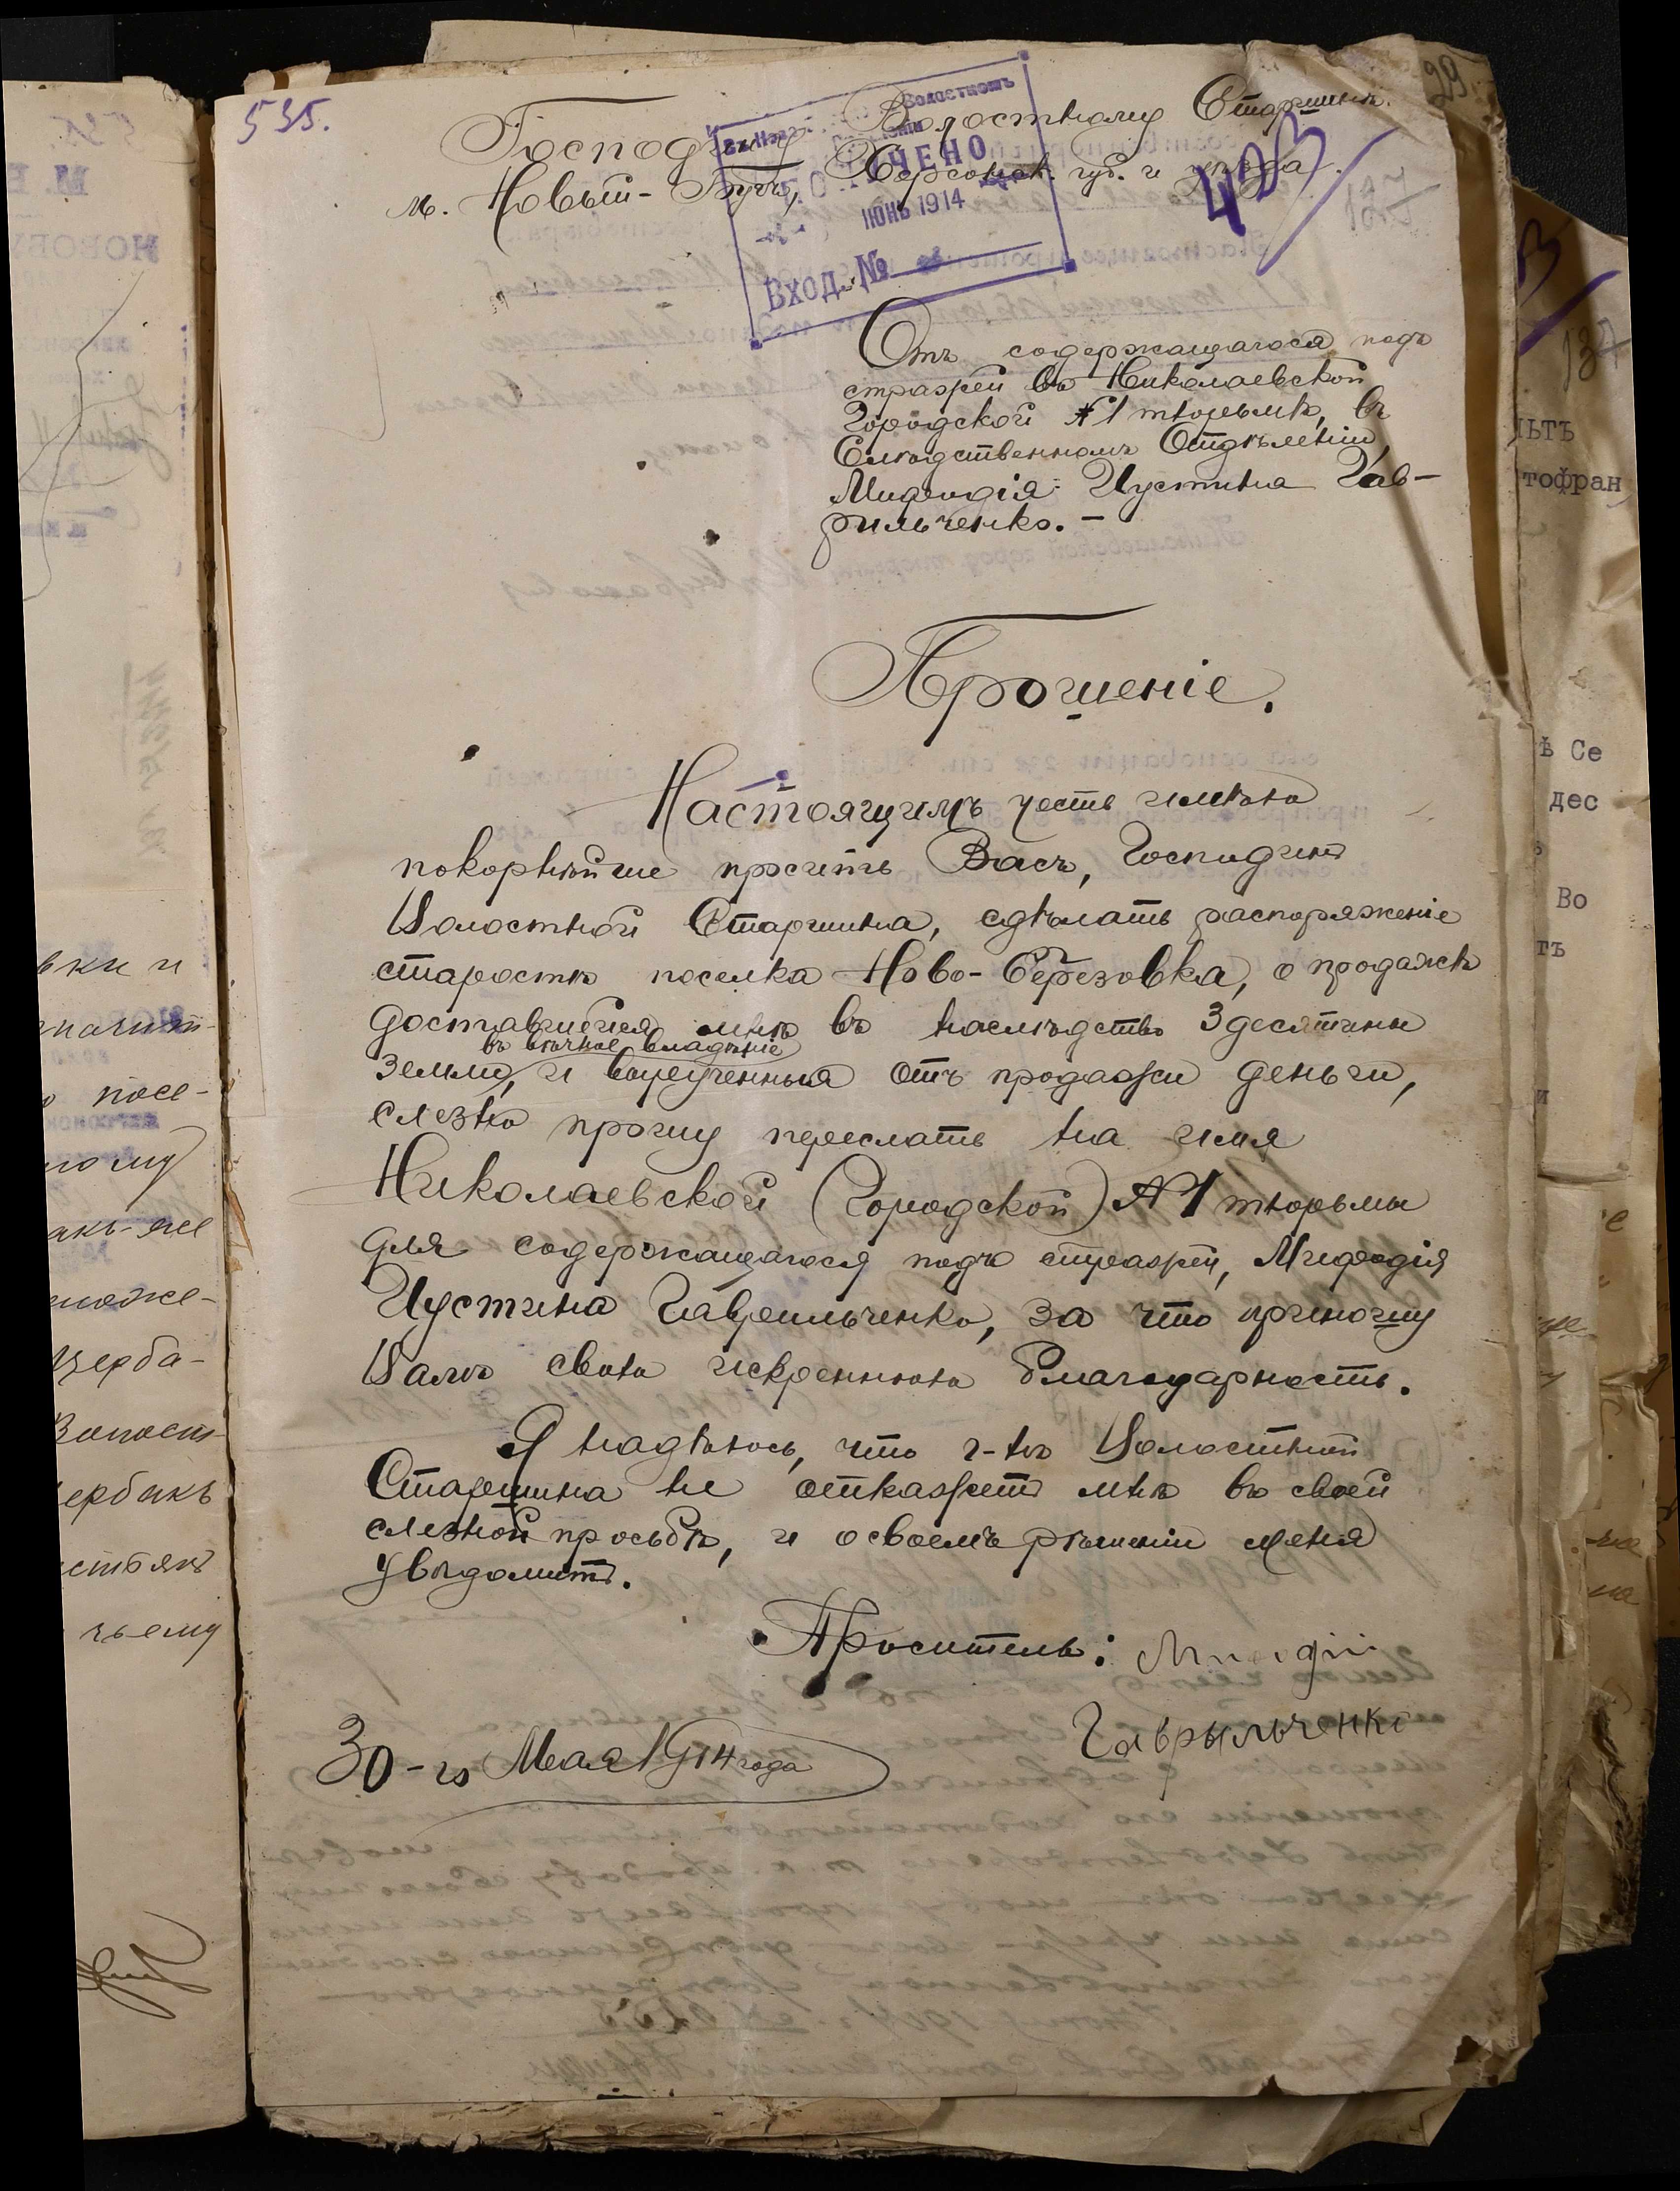 535.
29
Господину Волостному Старшинѣ
м. Новый-Бугъ, Херсонск. губ. и уѣзда.
423
Волостномъ
ПОЛУЧЕНО
ІЮНЬ 1914
Вход. №
Отъ содержащагося подъ
стражей въ Николаевской
Городской №1 тюрьмѣ, въ
Слѣдственномъ Отдѣленіи,
Мифодія Иустина Гав-
рильченко. —
Прошеніе.
Настоящимъ честь имѣю
покорнѣйше просить Васъ, Господинъ
Волостной Старшина, сдѣлать распоряженіе
старостѣ поселка Ново-Березовка, о продажѣ
доставшейся мнѣ въ наслѣдство 3 десятины
въ вѣчное владѣніе
земли, и вырученныя отъ продажи деньги,
слезно прошу переслать на имя
Николаевской (Городской) №1 тюрьмы
для содержащагося подъ стражей, Мифодія
Иустина Гаврильченко, за что приношу
Вамъ свою искреннюю благодарность.
Я надѣюсь, что г-нъ Волостной
Старшина не откажетъ мнѣ въ своей
слезной просьбѣ, и о своемъ рѣшеніи меня
увѣдомитъ.
Проситель:
Гаврыльченко
30-го Мая 1914 года
вки и
посе-
ному
акъ-же
Щерба-
ербакъ
чьему
льтъ
тофран
ѣ Се
дес
Во
тъ
и